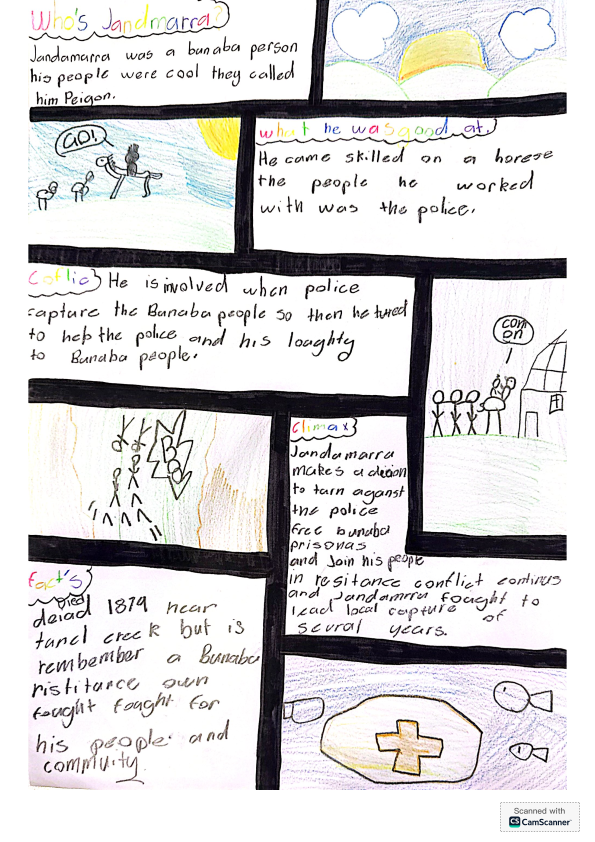 Who's Jandmarra?
Jandamarra was a banaba person
his people were cool they called
him Peigon.
GO!
what he was good at.
He came skilled on a horese
the people he worked
with was the police.
Coflic
He is involved when police
capture the Bunaba people so then he tured
to help the police and his loaghty
to Bunaba people.
COM
ON
climax
Jandamarra
makes a dicion
to turn aganst
the police
free bunaba
prisonas
and Join his people
in resitance conflict continus
and Jandamrra fought to
lead local capture of
sevral years.
fact's
Died
deiad 1879 near
tunel creek but is
rembember a Bunaba
ristitance own
fought fought for
his people and
commuity.
Scanned with
CS CamScanner